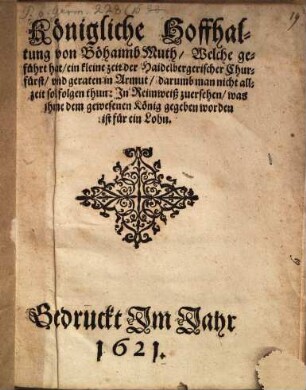 Königliche Hoffhal-
tung von Böhaimb Muth / Welche ge-
führt hat / ein kleine zeit der Haidelbergerischer Chur-
fürst / vnd geraten in Armut / darumb man nicht all-
zeit sol folgen thun: In Reimweiß zuersehen / was
ihme dem gewesenen König gegeben worden
ist für ein Lohn.
Gedruckt Im Jahr
1621.